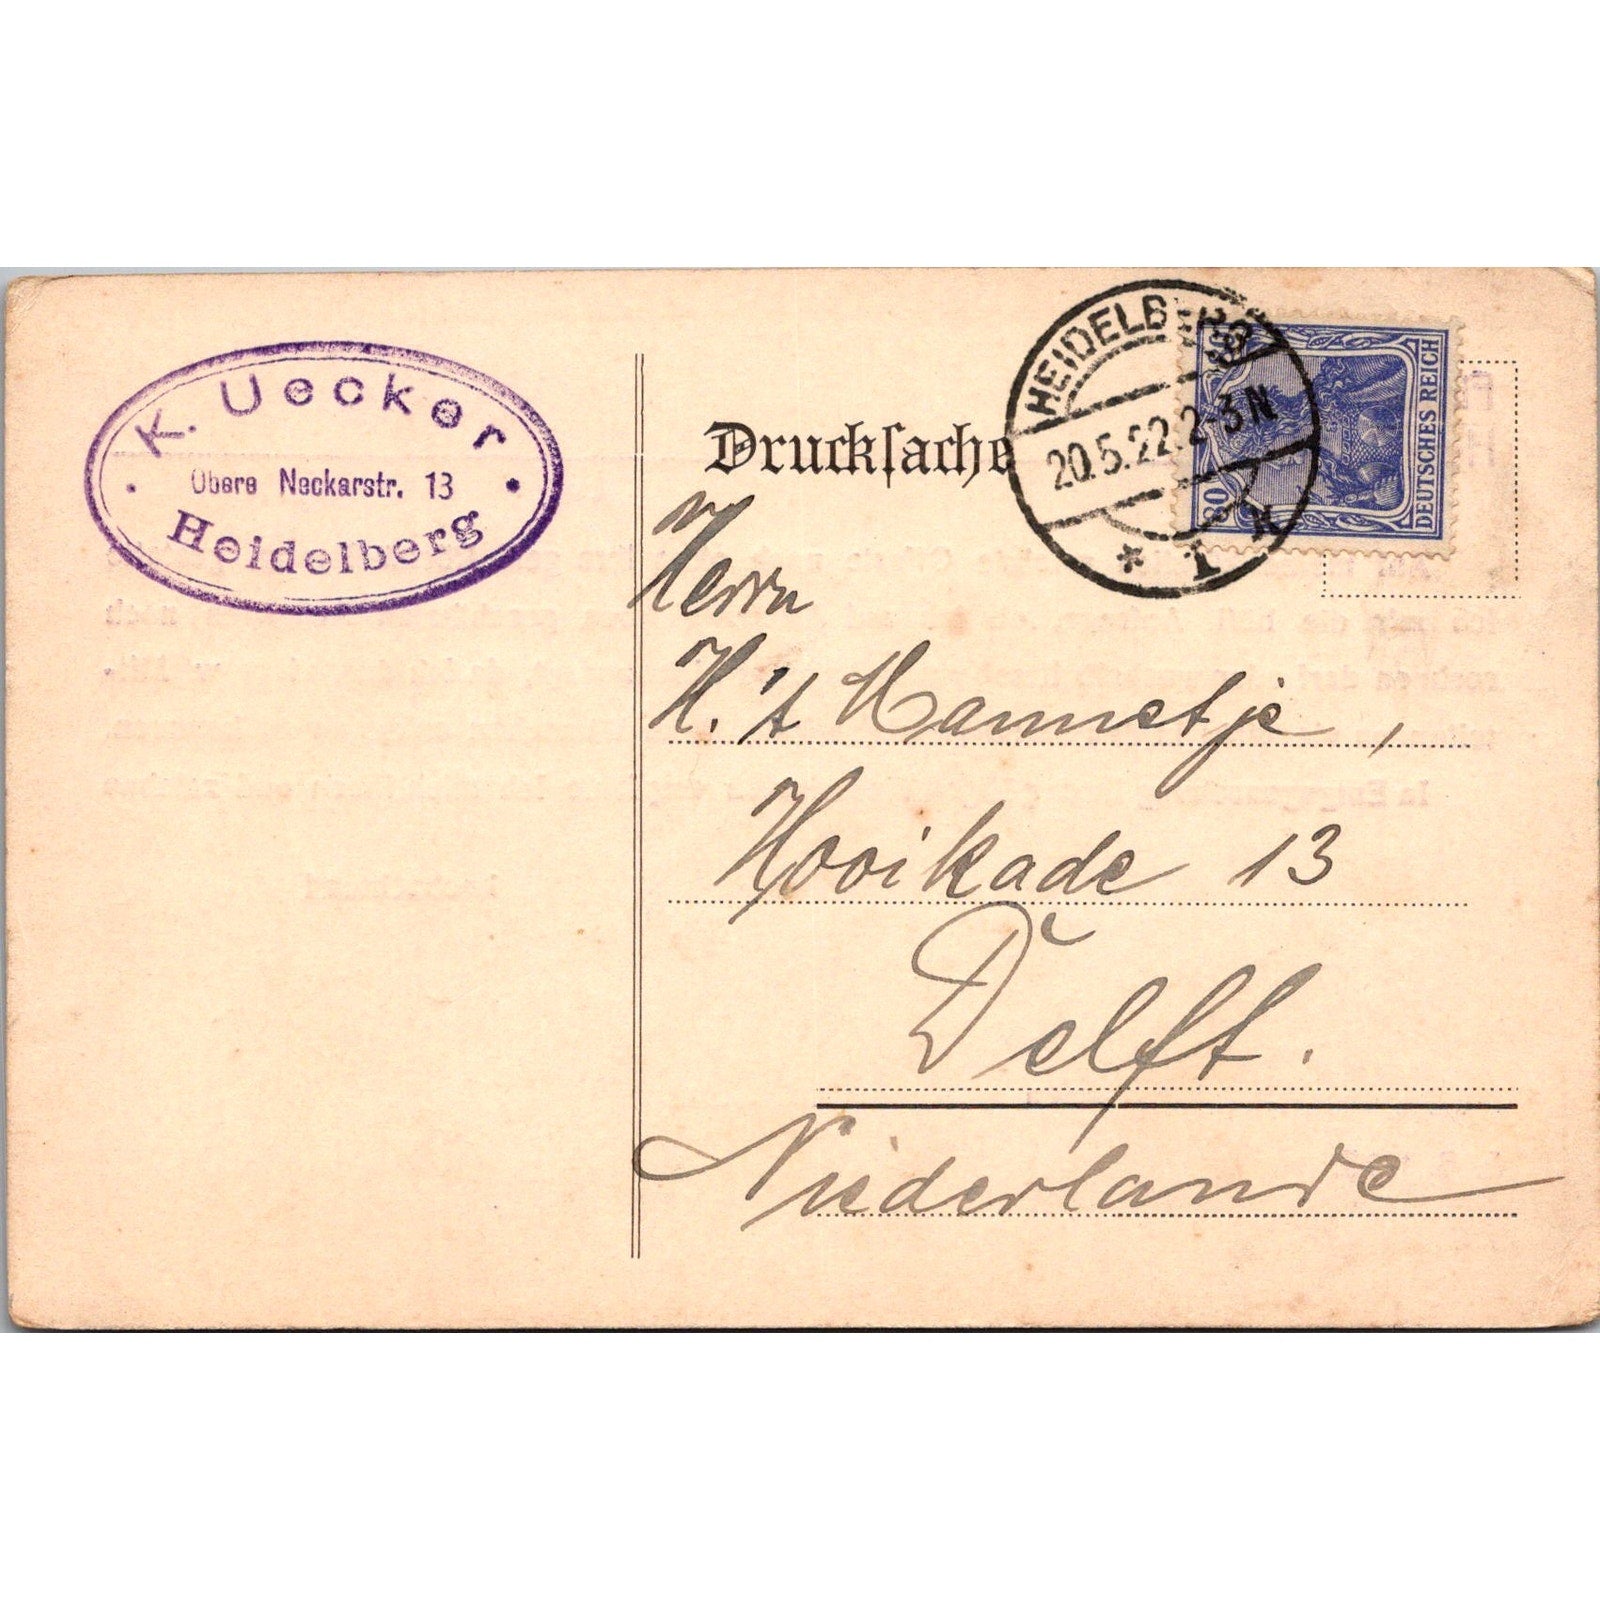 K. Uecker
Obere Neckarstr. 13
Heidelberg
Drucksache
HEIDELBERG
20.5.22.2-3N
* 1 *
80
DEUTSCHES REICH
Herrn
H. 't Mannetje,
Hooikade 13
Delft.
Niederlande